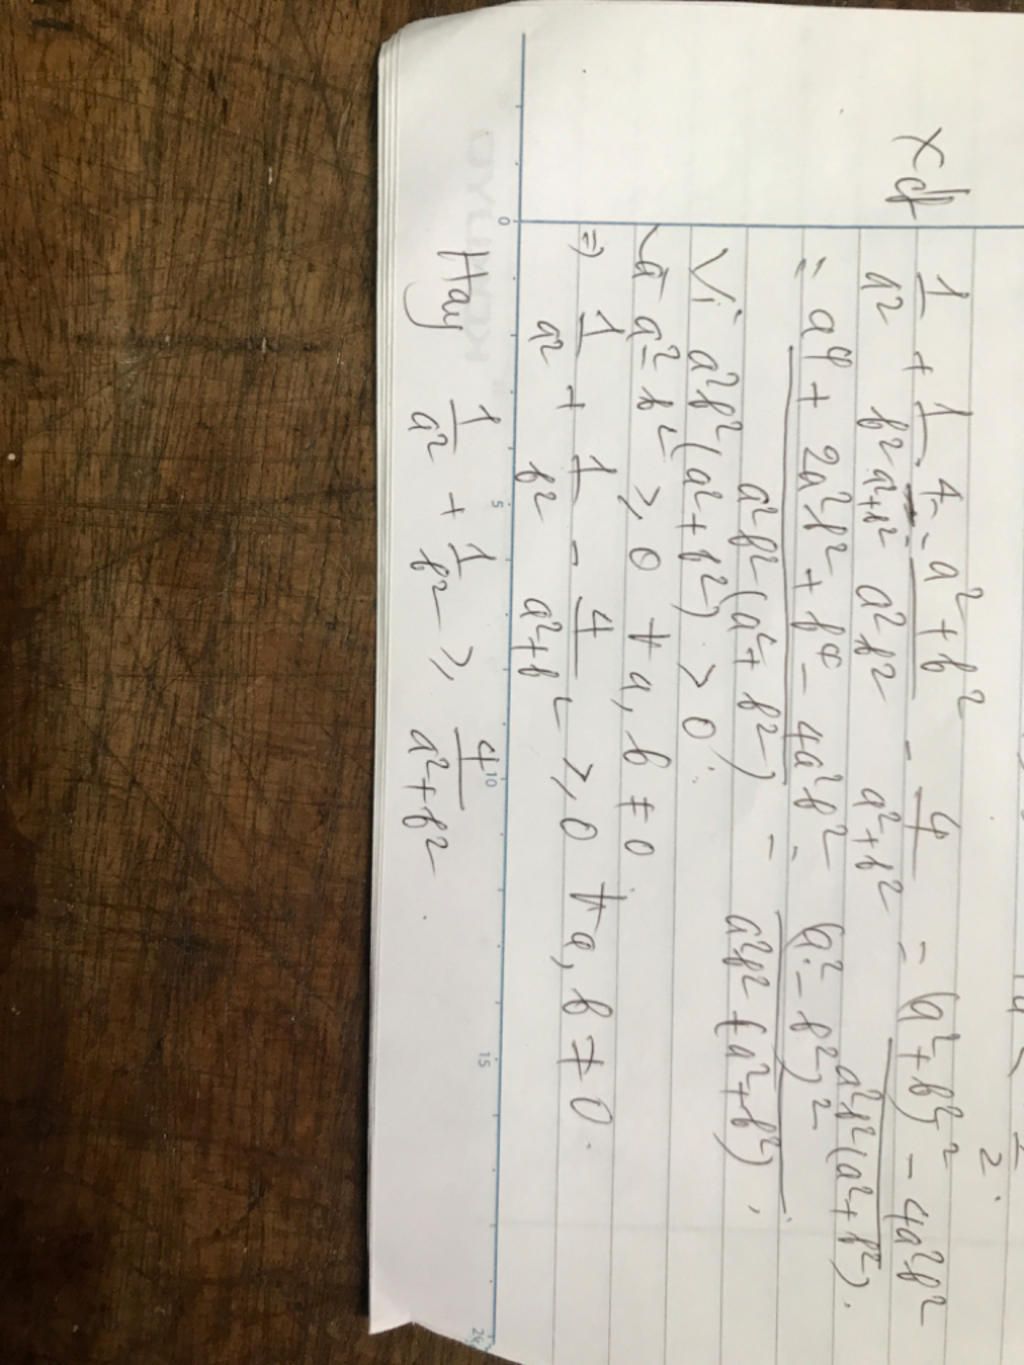 2.
Xđ
1/a² + 1/b² - 4/(a²+b²) = (a²+b²)/(a²b²) - 4/(a²+b²) = ((a²+b²)² - 4a²b²)/(a²b²(a²+b²)).
= (a⁴ + 2a²b² + b⁴ - 4a²b²)/(a²b²(a²+b²)) = (a²-b²)²/(a²b²(a²+b²)).
Vì a²b²(a²+b²) > 0
và a²-b² ≥ 0 ∀a, b ≠ 0
⇒ 1/a² + 1/b² - 4/(a²+b²) ≥ 0 ∀a, b ≠ 0.
Hay 1/a² + 1/b² ≥ 4/(a²+b²).
0 5 10 15